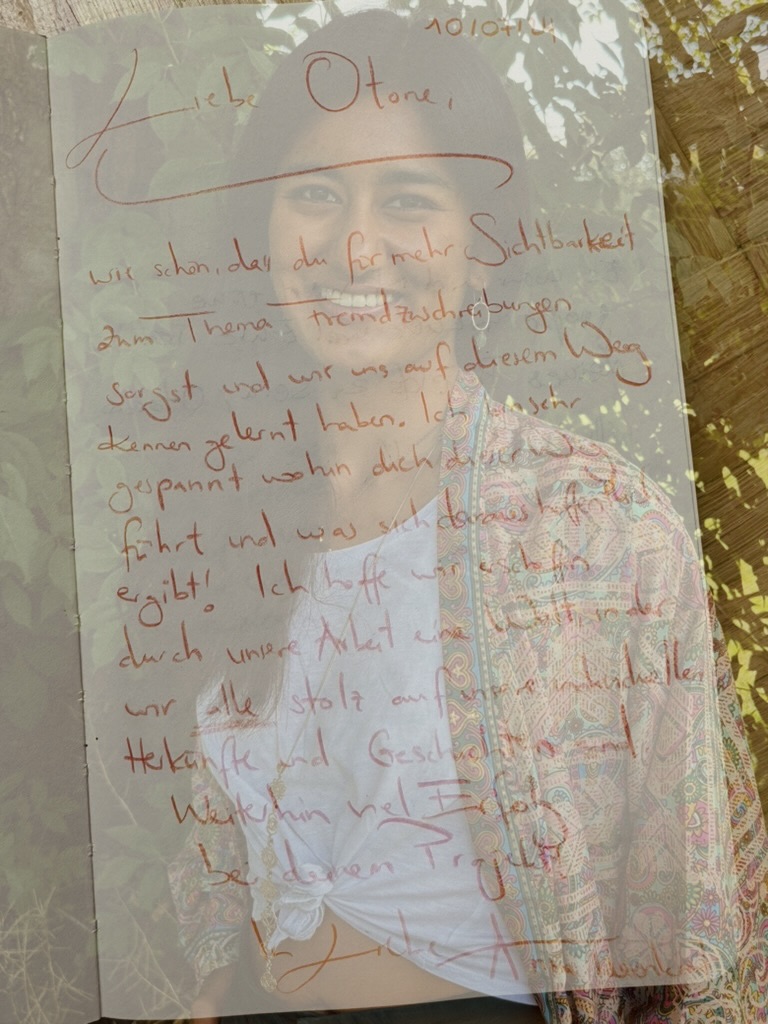 10/07/21
Liebe Otone,
wie schön, dass du für mehr Sichtbarkeit
zum Thema Fremdzuschreibungen
sorgst und wir uns auf diesem Weg
kennen gelernt haben. Ich bin sehr
gespannt wohin dich dieser Weg
führt und was sich daraus
ergibt! Ich hoffe wir erschaffen
durch unsere Arbeit eine in der
wir alle stolz auf unsere individuellen
Herkünfte und Geschichten sind.
Weiterhin viel Erfolg
bei deinem Projekt
In Liebe